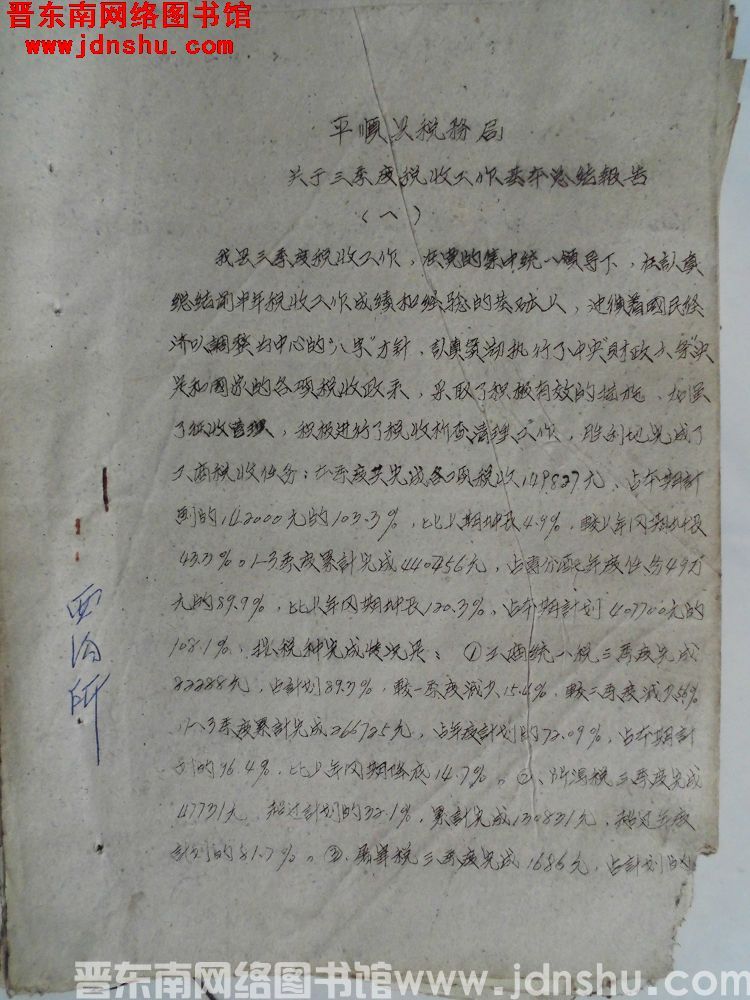 晋东南网络图书馆
www.jdnshu.com
平顺县税務局
关于三季度税收工作基本总结報告
（一）
我县三季度税收工作，在党的集中統一領导下，在認真
總結前半年税收工作成績和经驗的基础上，遵循着國民经
济以調整为中心的"八字"方針，認真貫彻执行了中央"財政六条"决
定和國家的各項税收政策，采取了积极有效的措施，加强
了征收管理，积极进行了税收檢查清理工作，胜利地完成了
工商税收任务：本季度共完成各項税收149827元，占本期計
划的142000元的103.3%，比上期增長4.9%，較上年同期增長
43.3%。1-3季度累計完成440456元，占專分配年度任务49万
元的89.9%，比上年同期增長120.3%，占本期計划407700元的
108.1%，按税种完成情况是：①工商統一税三季度完成
82288元，占計划89.3%，較一季度減少15.4%，較二季度減少
1-3季度累計完成266725元，占年度計划的72.09%，占本期計
划的96.4%，比上年同期降底14.7%。②、所得税三季度完成
47731元，超过計划的32.1%，累計完成130831元，超过年度
計划的81.7%。③屠宰税三季度完成1686元，占計划的
西沟所
晋东南网络图书馆www.jdnshu.com